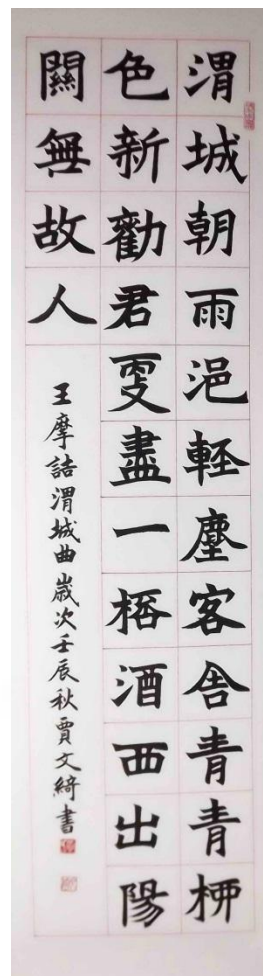 渭城朝雨浥輕塵客舎青青栁
色新勸君更盡一桮酒西出陽
關無故人
王摩詰渭城曲歲次壬辰秋賈文綺書